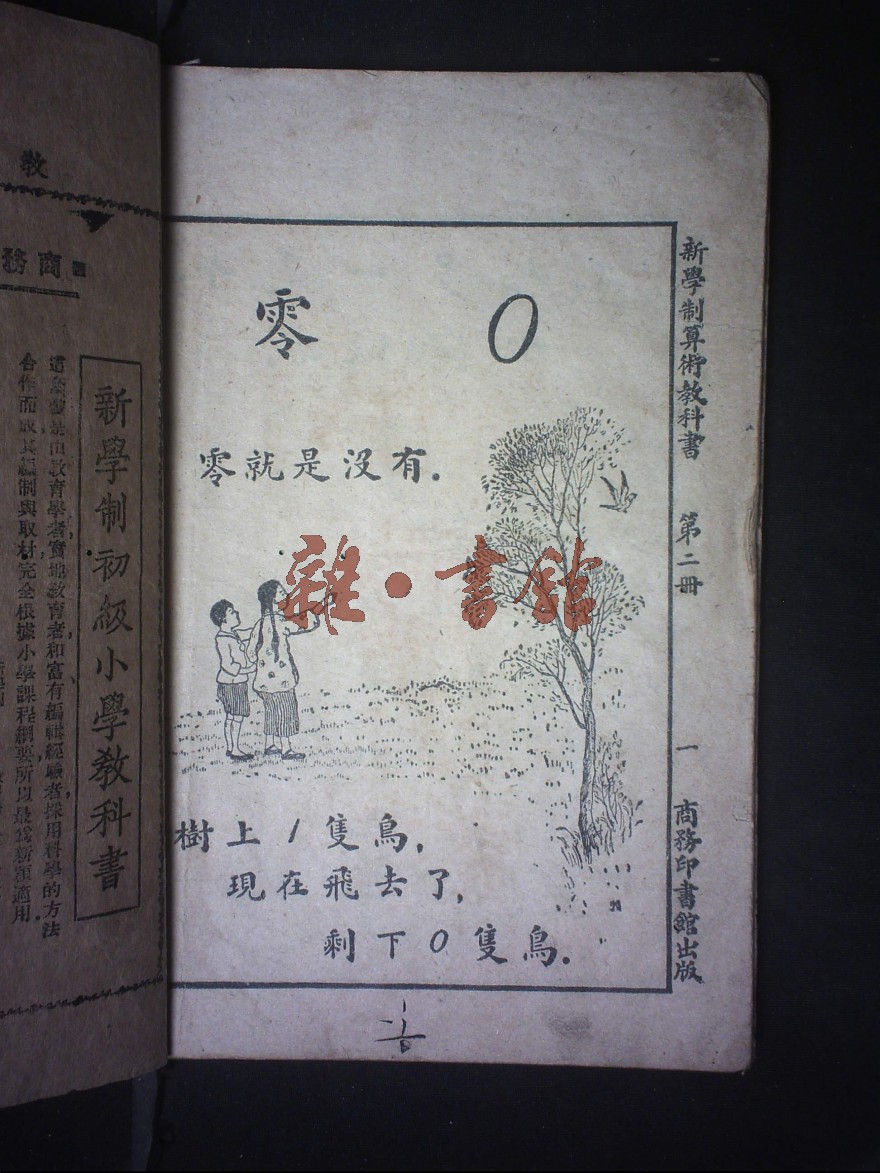 零 0
零就是沒有.
樹上1隻鳥,
現在飛去了,
剩下0隻鳥.
新學制算術教科書 第二冊 一 商務印書館出版
雜·書館
教
商務
新學制初級小學教科書
這套書是由教育學者實地教育者和富有編輯經驗者採用科學的方法
合作而成其編制與取材完全根據小學課程綱要所以最爲新穎適用